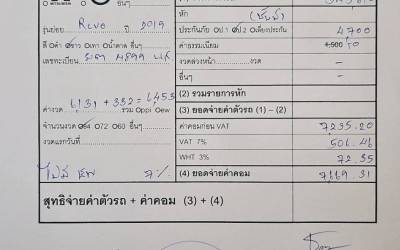 อื่นๆ
หัก
รุ่นย่อย Revo ปี 2019
ประกันภัย ป1 ป2 เลี่ยงประกัน 4,700
สี ดำ ขาว เทา น้ำตาล อื่นๆ
ค่าธรรมเนียม 4,500
เลขทะเบียน 4899
งวดล่วงหน้า งวด -
อื่นๆ -
(2) รวมรายการหัก
ค่างวด 6,131 + 332 = 6,453 รวมOppi Oew
(3) ยอดจ่ายค่าตัวรถ (1) – (2)
จำนวนงวด 84 72 60 อื่นๆ
ค่าคอมก่อน VAT 7,235.20
งวดแรกวันที่
VAT 7% 506.46
WHT 3% 72.35
7%
(4) ยอดจ่ายค่าคอม 7,669.31
สุทธิจ่ายค่าตัวรถ + ค่าคอม (3) + (4)